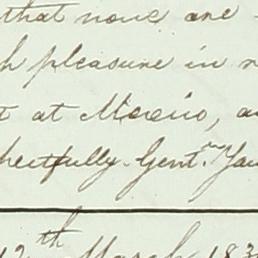 that none are
h pleasure in
t at
pectfully Gent.n You
12th March 183